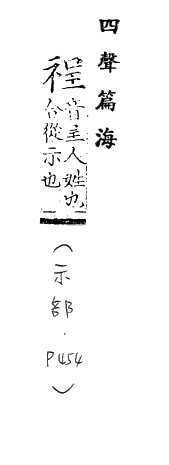 四聲篇海
䄇
音主人姓也
合從示也
(示部.P454)